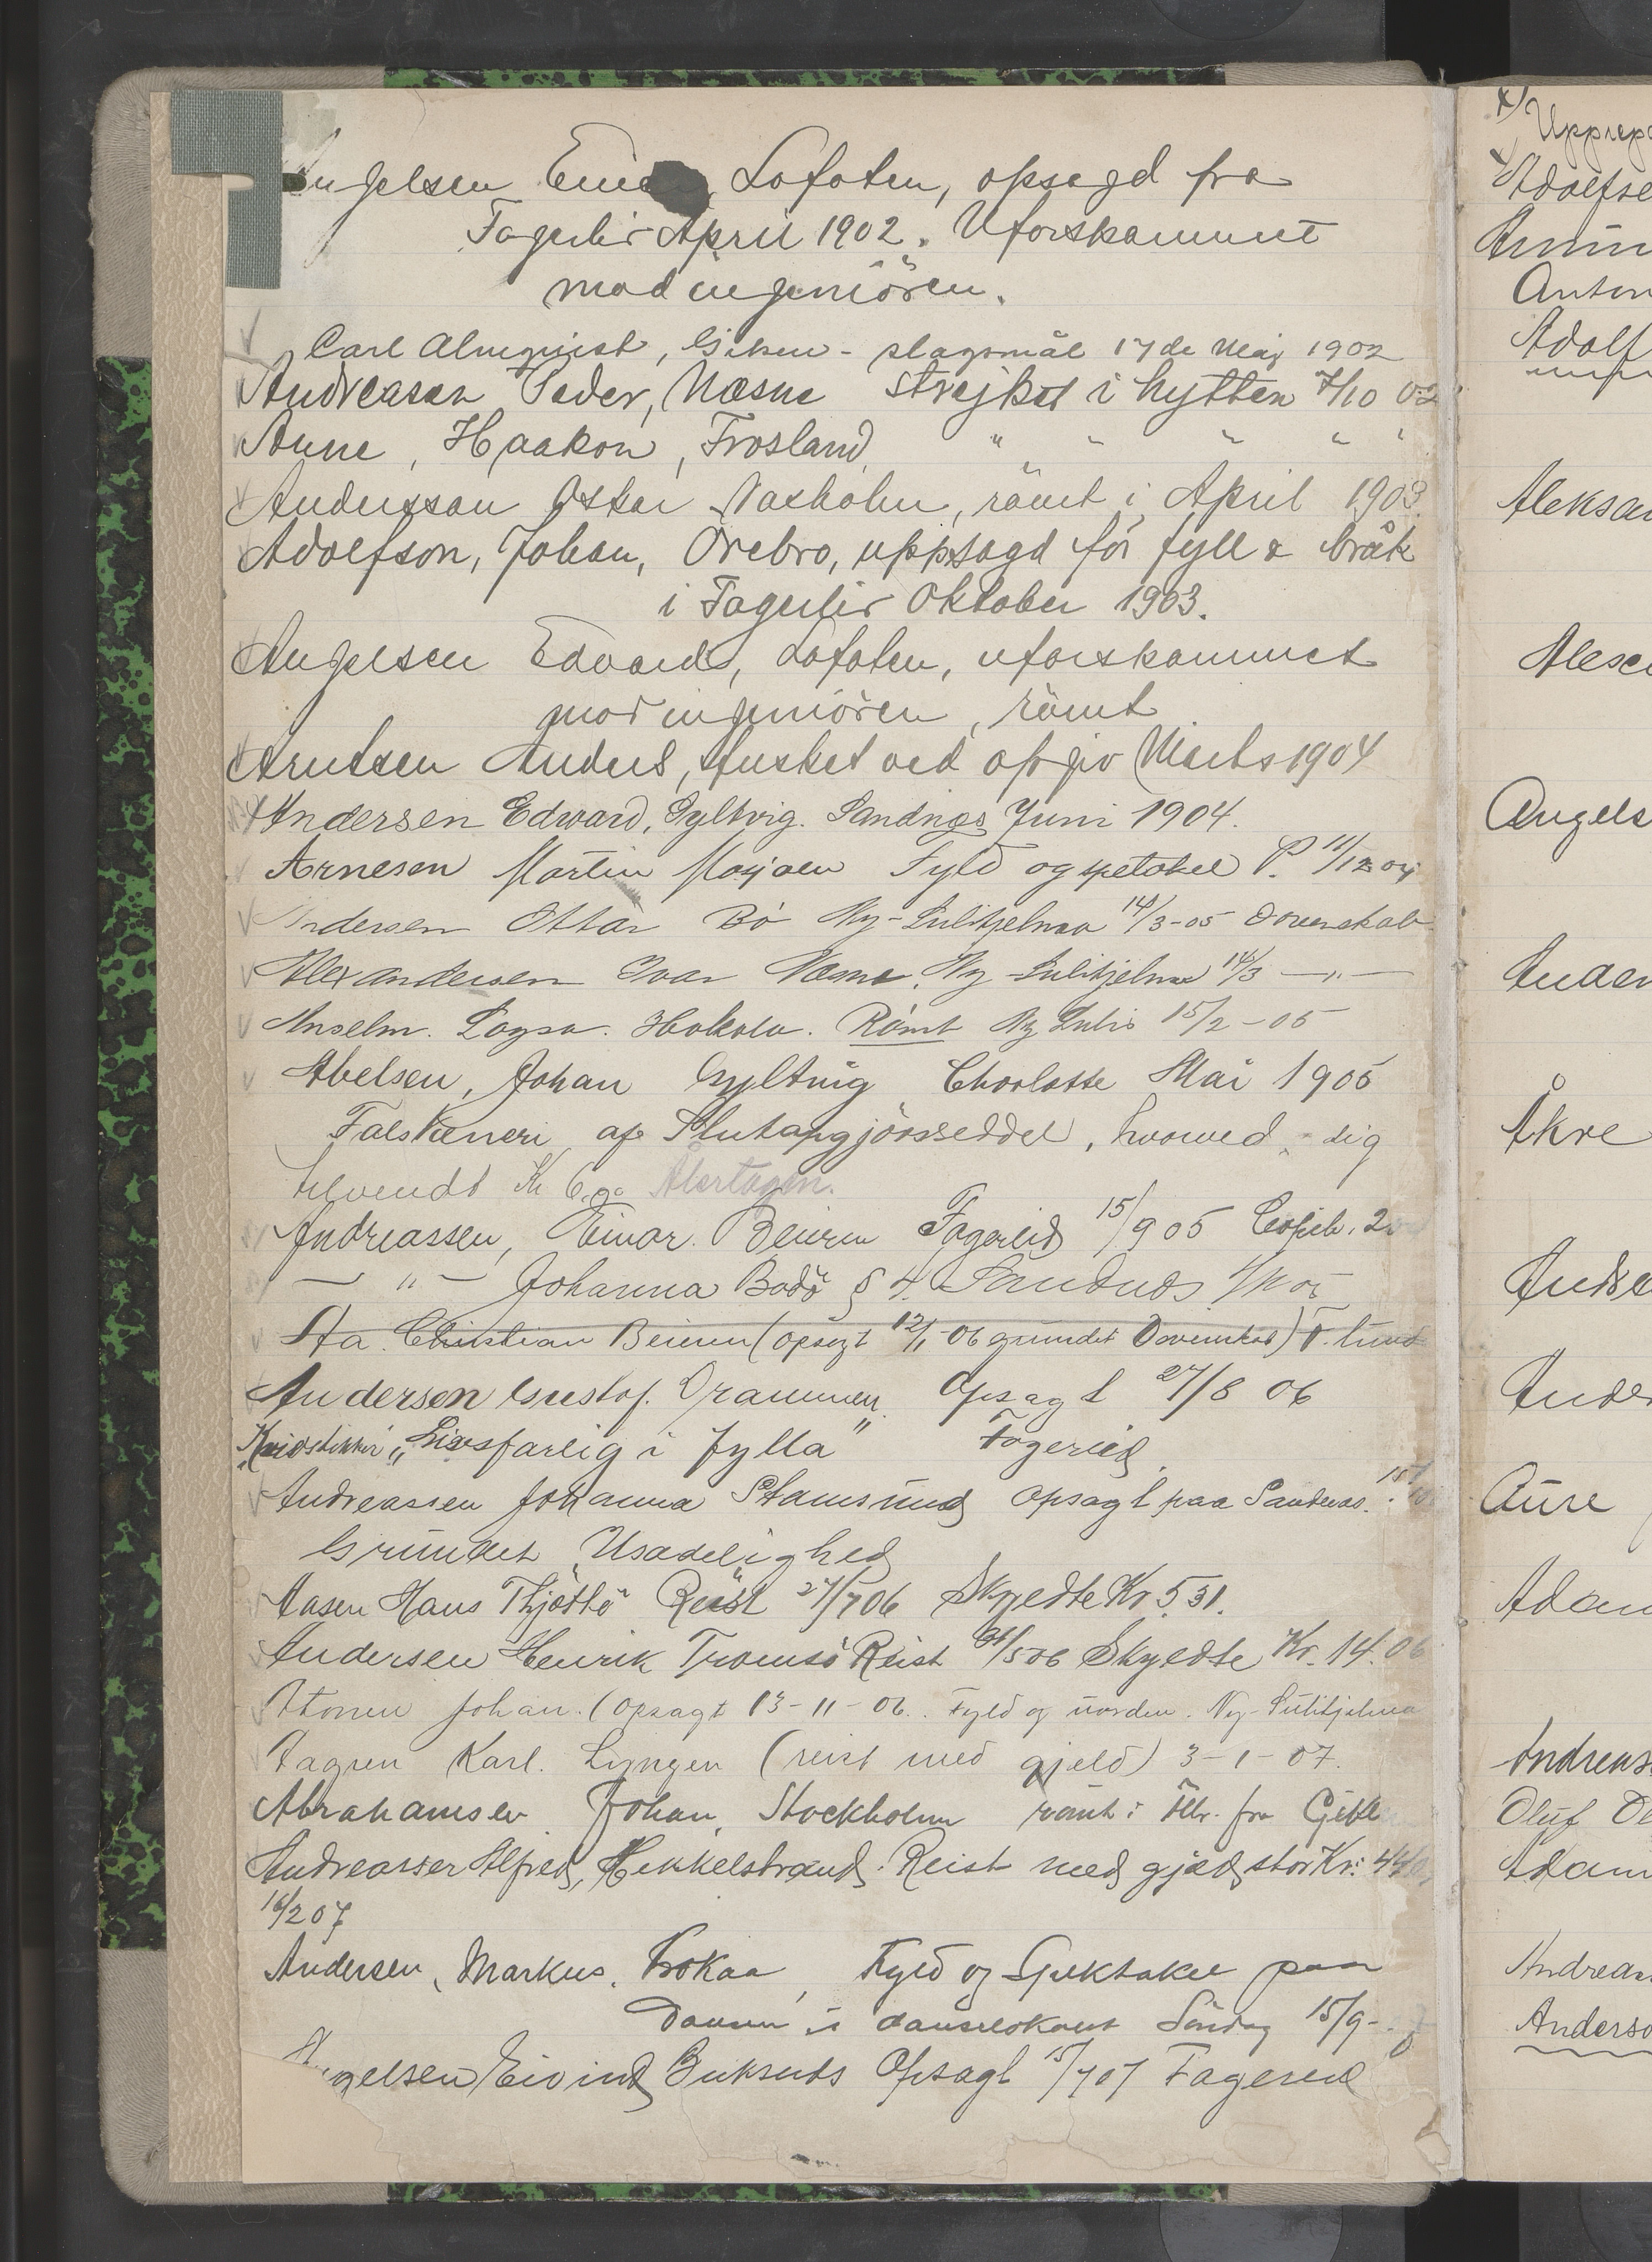 Angelsen, Lofoten, opsagd fra
Fagerlir April 1902. Uforskammet
mod ingeniören.
Carl Almqvist, Giken - slagsmål 17de Maj 1902
Andreasen Peder, Næsne strejket i hytten 7/10 02
Aune, Haakon, Frosland " " " " "
Andersson Oskar Vaxholm, römt i April 1903.
Adolfson, Johan, Örebro, uppsagd för fyll & bråk
i Fagerlir Oktober 1903.
Angelsen Edvard, Lofoten, uforskammet
mod ingeniören, römt
Arntsen Anders, fusket ved opgiv Marts 1904
Andersen Edward, Gyltvig. Sandnæs Juni 1904.
Arnesen Martin Mosjøen Fyld og spetakel P. 11/12 04
Andersen Ottar Bö Ny-Sulitjelma 14/3-05 Dovenskab
Alexandersen Ivar Næsne. Ny Sulitjelma 14/3 — " —
Anselm. Logsa. Hokola. Römt Ny Sulis 15/2-05
Abelsen, Johan Gyltvig Charlotte Mai 1905
Falskneri af Slutopgjörsseddel, hvorved sig
tilvendt Kr 6.90 Återtagen.
Andreassen, Einar. Beiern Fagerlid 15/9 05
— " — Johanna Bodö § 4. Sandnes
Aa. Christian Beiern (opsagt 12/1-06 grundet Dovenskab)
Andersen Gustaf. Drammen. Opsagt 27/8 06
"Knivstikker" "Livsfarlig i fylla" Fagerlid.
Andreassen Johanna Stamsund opsagt paa Sandnes.
Grundet Usædelighed
Aasen Hans Thjöttö Reist 27/7 06 Skyldte Kr. 5.31.
Andersen Henrik Tromsö Reist 31/5 06 Skyldte Kr. 14.06
Johan. (Opsagt 13-11-06. Fyld og uorden. Ny-Sulitjelma
Karl. Lyngen (reist med gjeld) 3-1-07.
Abrahamsen Johan, Stockholm römt i fra
Andreassen Alfred, Hekkelstrand. Reist med gjæld stor Kr:
16/2 07
Andersen, Markus. Trokaa, Fyld og Spektakel paa
i danselokalet Söndag 15/9-
Angelsen Eivind Buksnes Opsagt 15/7 07 Fagerlid
Adolfse
Anton
Adolf
Aleksan
Angels
Åkre
Aure
Adam
Andreas
Oluf
Adam
Andreas
Anderso